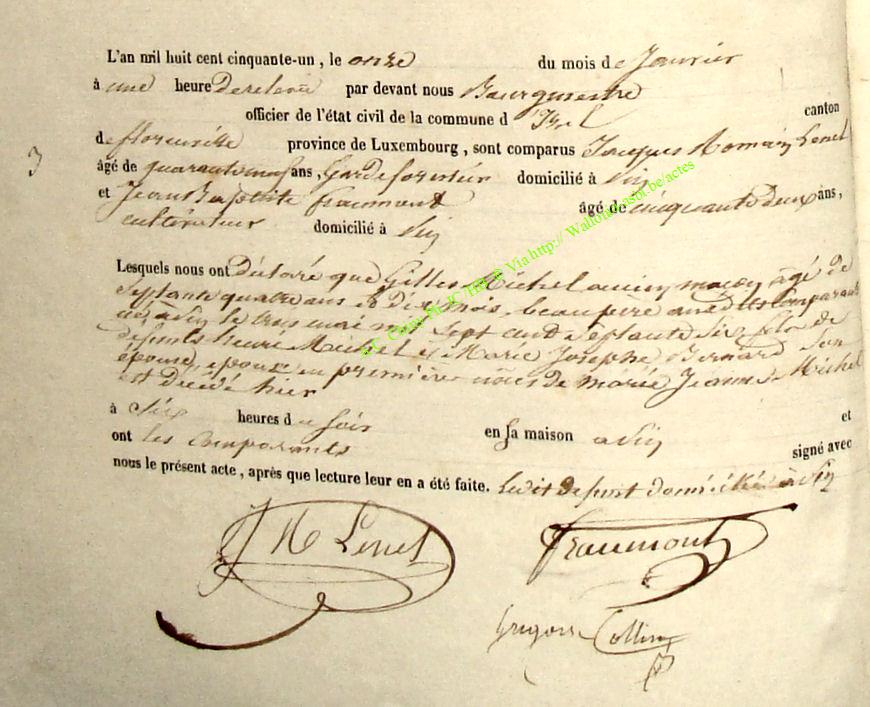 L'an mil huit cent cinquante-un, le onze du mois de Janvier
à une heure de relevée par devant nous Bourgmestre
officier de l'état civil de la commune d'Izel canton
de florenville province de Luxembourg, sont comparus Jacques Romain Lenel
3
âgé de quarante neuf ans, Garde forestier domicilié à
et Jean Baptiste fraumont âgé de cinquante deux ans,
cultivateur domicilié à
Lesquels nous ont déclaré que Gilles Michel ancien maçon âgé de
septante quatre ans & dix mois, beaupère comparants
né à le trois mai mil sept cent septante six, fils de
defunts henri Michel et Marie Josephe Bernard son
épouse, epoux en premières noces de marie Jeanne Michel
est décédé hier
à six heures du soir en sa maison à et
ont les comparants signé avec
nous le présent acte, après que lecture leur en a été faite. Ledit defunt domicilié à
J R Lenel fraumont
Collin
Via http:// .be/actes